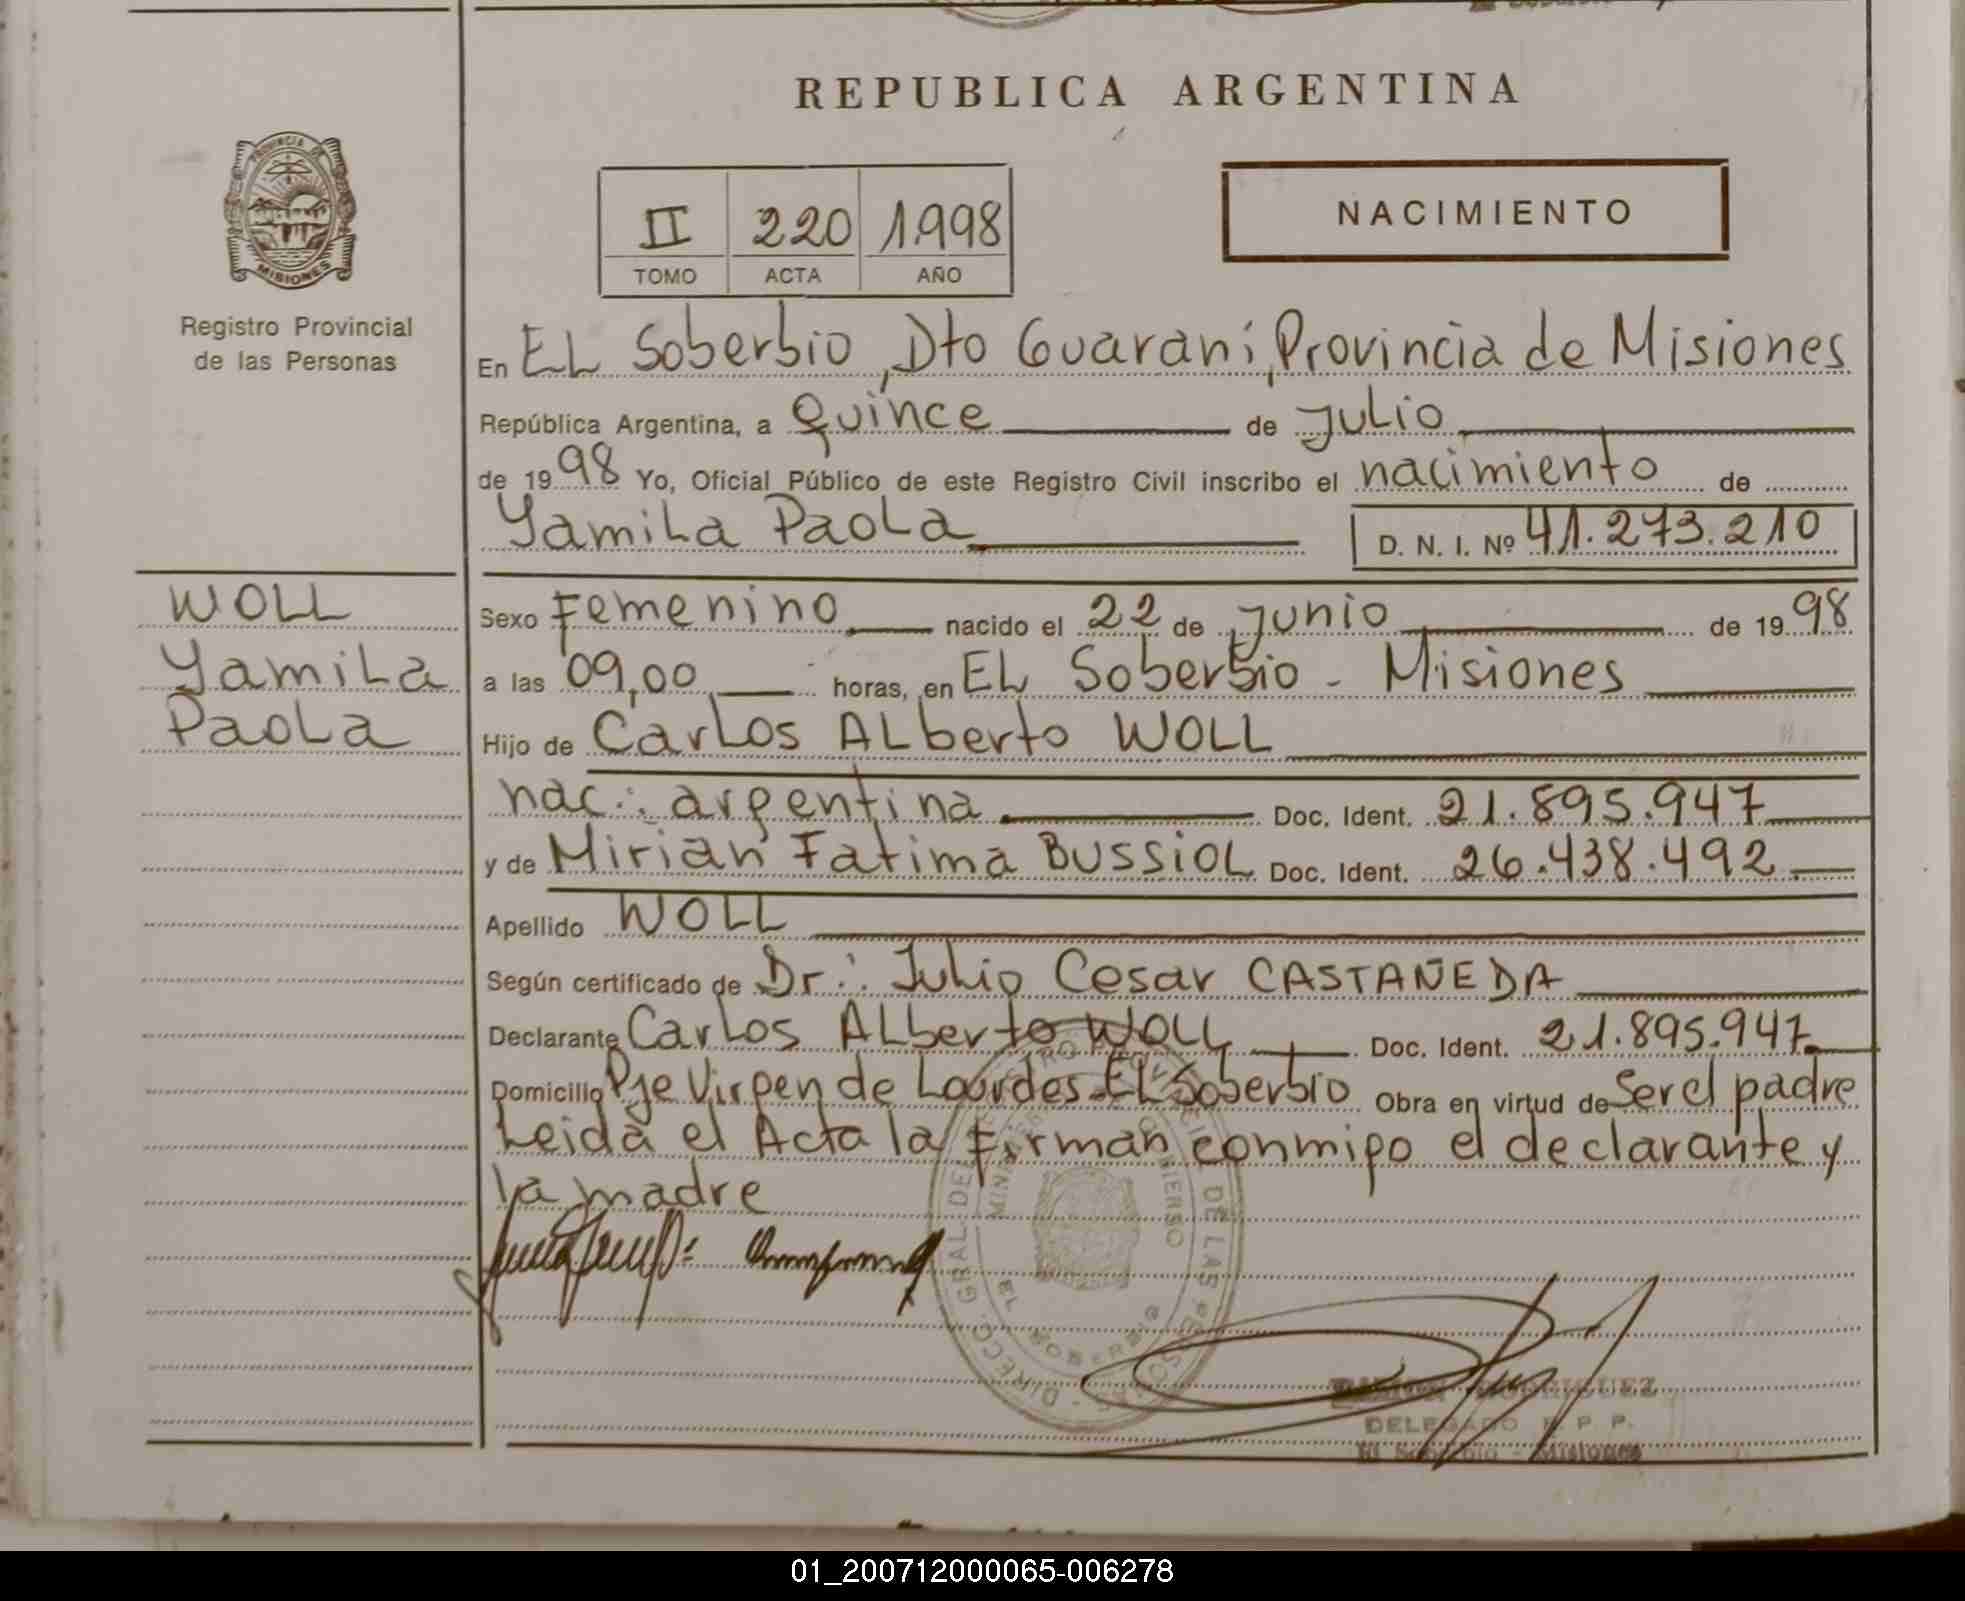 REPUBLICA ARGENTINA
PROVINCIA DE
MISIONES
Registro Provincial
de las Personas
II 220 1.998
TOMO ACTA AÑO
NACIMIENTO
En EL Soberbio, Dto Guaraní, Provincia de Misiones
República Argentina, a Quince de Julio
de 1998 Yo, Oficial Público de este Registro Civil inscribo el nacimiento de
Yamila Paola D. N. I. Nº 41.273.210
WOLL
Yamila
Paola
Sexo Femenino nacido el 22 de junio de 1998
a las 09,00 horas, en EL Soberbio - Misiones
Hijo de Carlos ALberto WOLL
nac: argentina Doc. Ident. 21.895.947
y de Mirian Fatima BUSSIOL Doc. Ident. 26.438.492
Apellido WOLL
Según certificado de Dr: Julio Cesar CASTAÑEDA
Declarante Carlos ALberto WOLL Doc. Ident. 21.895.947
Domicilio Pje Virgen de Lourdes-EL Soberbio Obra en virtud de Ser el padre
Leida el Acta la Firman conmigo el declarante y
la madre
DIRECC. GRAL DE DE LAS
EL SOBERBIO
RODRIGUEZ
DELEGADO R. P. P.
El Soberbio - Misiones
01_200712000065-006278